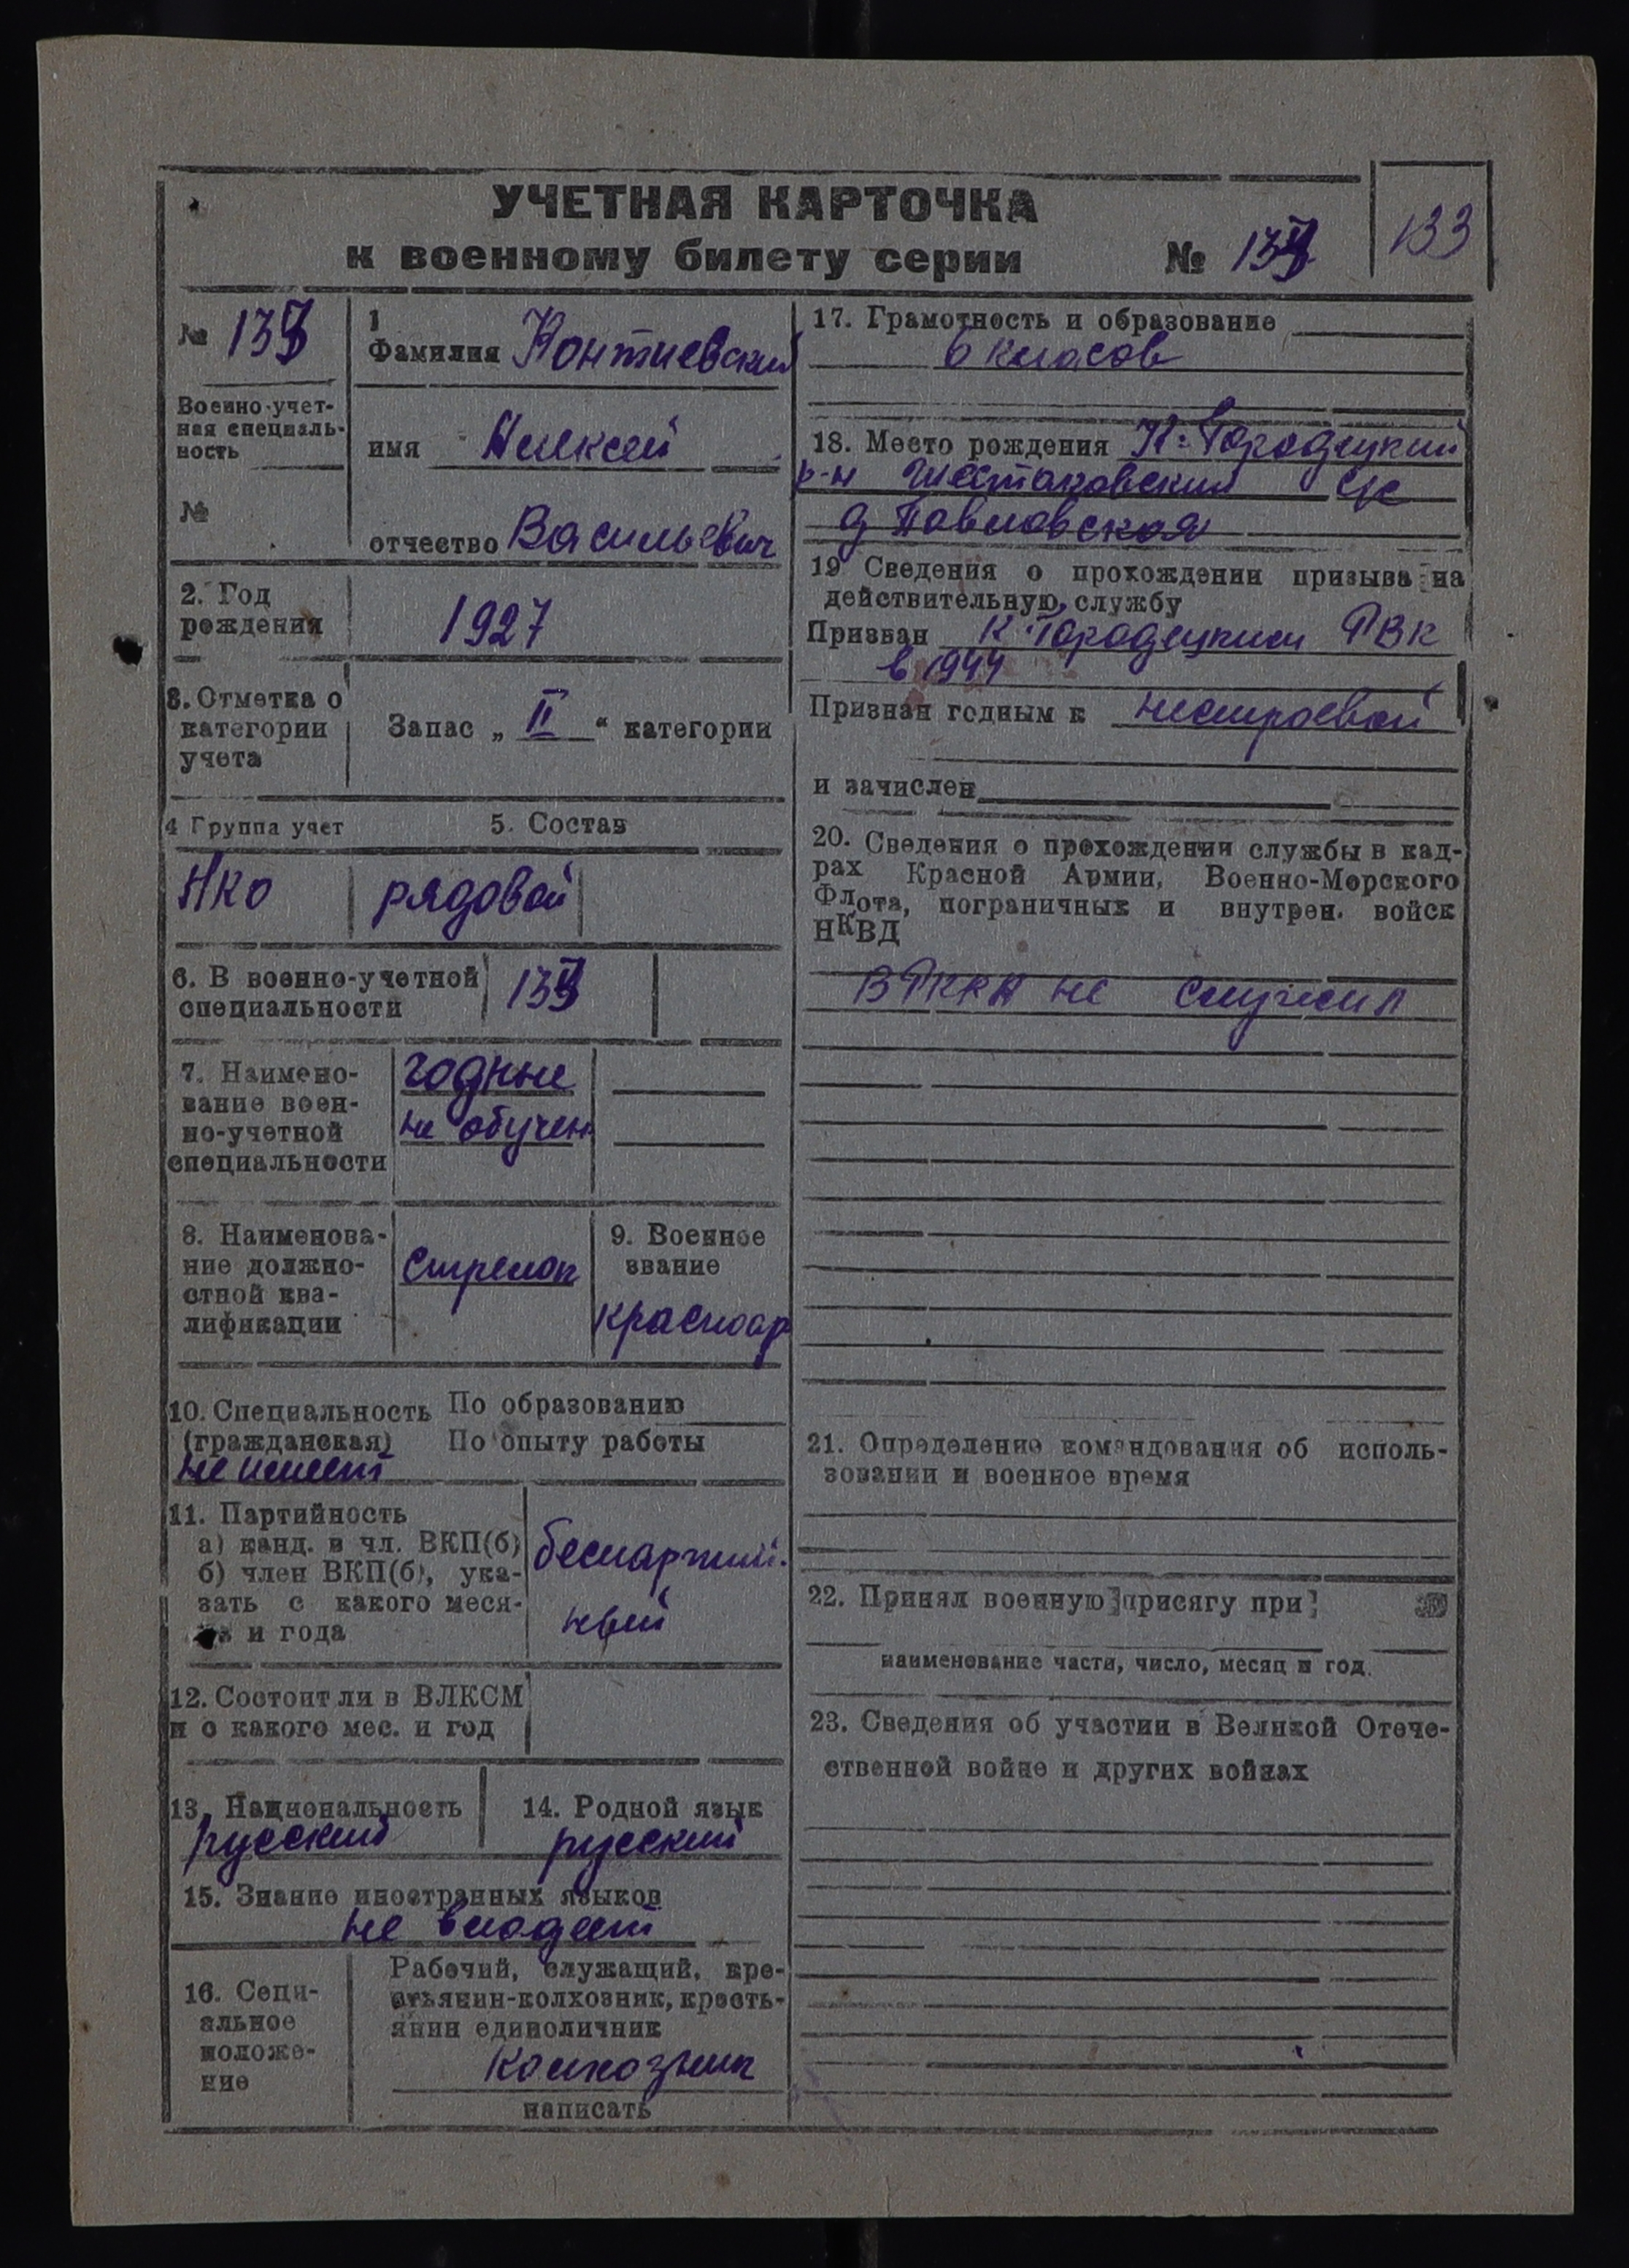 УЧЕТНАЯ КАРТОЧКА
к военному билету серии № 133
№
1
Фамилия
Военно-учет-
ная специаль-
ность
имя Алексей
№
отчество Васильевич
2. Год
рождения
1927
3. Отметка о
категории
учета
Запас „ II “ категории
4 Группа учет
5. Состав
НКО
рядовой
6. В военно-учетной
специальности
7. Наимено-
вание воен-
но-учетной
специальности
годные
не обучен
8. Наименова-
ние должно-
стной ква-
лификации
стрелок
9. Военное
звание
красноар
10. Специальность
(гражданская)
По образованию
По опыту работы
не имеет
11. Партийность
а) канд. в чл. ВКП(б)
б) член ВКП(б), ука-
зать с какого меся-
ца и года
беспартий-
ный
12. Состоит ли в ВЛКСМ
и с какого мес. и год
13. Национальность
русский
14. Родной язык
русский
15. Знание иностранных языков
не владеет
16. Соци-
альное
положе-
ние
Рабочий, служащий, кре-
стьянин-колхозник, кресть-
янин единоличник
колхозник
написать
17. Грамотность и образование
6 класов
18. Место рождения К-Городецкий
р-н Шестаковский с/с
д Павловская
19 Сведения о прохождении призыва на
действительную службу
Призван К-Городецким РВК
в 1944
Признан годным к нестроевой
и зачислен
20. Сведения о прохождении службы в кад-
рах Красной Армии, Военно-Морского
Флота, пограничных и внутрен. войск
НКВД
В РККА не служил
21. Определение командования об исполь-
зовании и военное время
22. Принял военную присягу при
наименование части, число, месяц и год.
23. Сведения об участии в Великой Отече-
ственной войне и других войнах